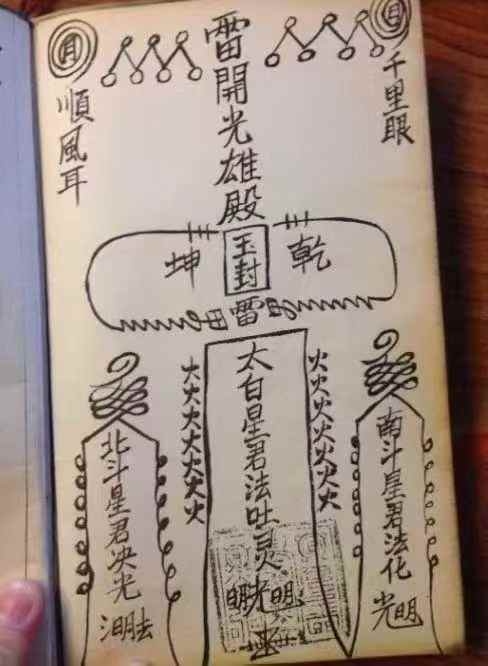 日
千里眼
雷開光雄殿
月
順風耳
乾
玉封
坤
雷
南斗星君法化
光明
火火火火火火火火
太白星君法吐灵
明光明
火火火火火火火
北斗星君决光
明